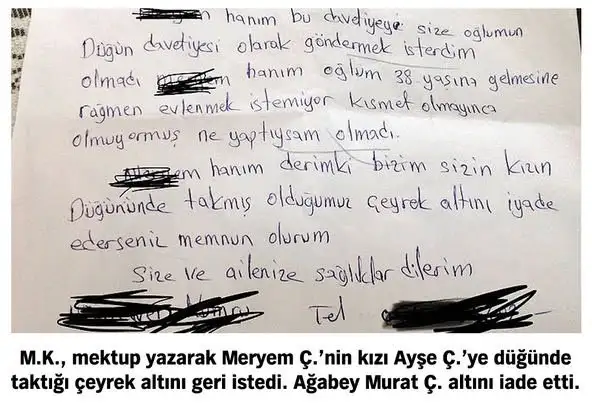 hanım bu davetiyeyi size oğlumun
Düğün davetiyesi olarak göndermek isterdim
olmadı hanım oğlum 38 yaşına gelmesine
rağmen evlenmek istemiyor kısmet olmayınca
olmuyormuş ne yaptıysam olmadı.
hanım derimki bizim sizin kızın
Düğününde takmış olduğumuz çeyrek altını iyade
ederseniz memnun olurum
Size ve ailenize sağlıklar dilerim
Tel
M.K., mektup yazarak Meryem Ç.'nin kızı Ayşe Ç.'ye düğünde
taktığı çeyrek altını geri istedi. Ağabey Murat Ç. altını iade etti.